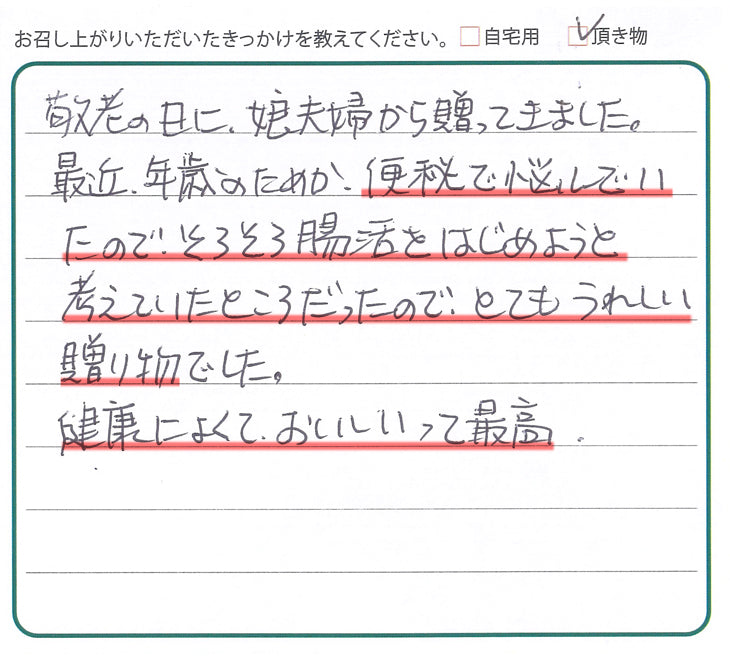 お召し上がりいただいたきっかけを教えてください。 □自宅用 ☑頂き物
敬老の日に、娘夫婦から贈ってきました。
最近、年歳のためか、便秘で悩んでい
たので、そろそろ腸活をはじめようと
考えていたところだったので、とてもうれしい
贈り物でした。
健康によくて、おいしいって最高.